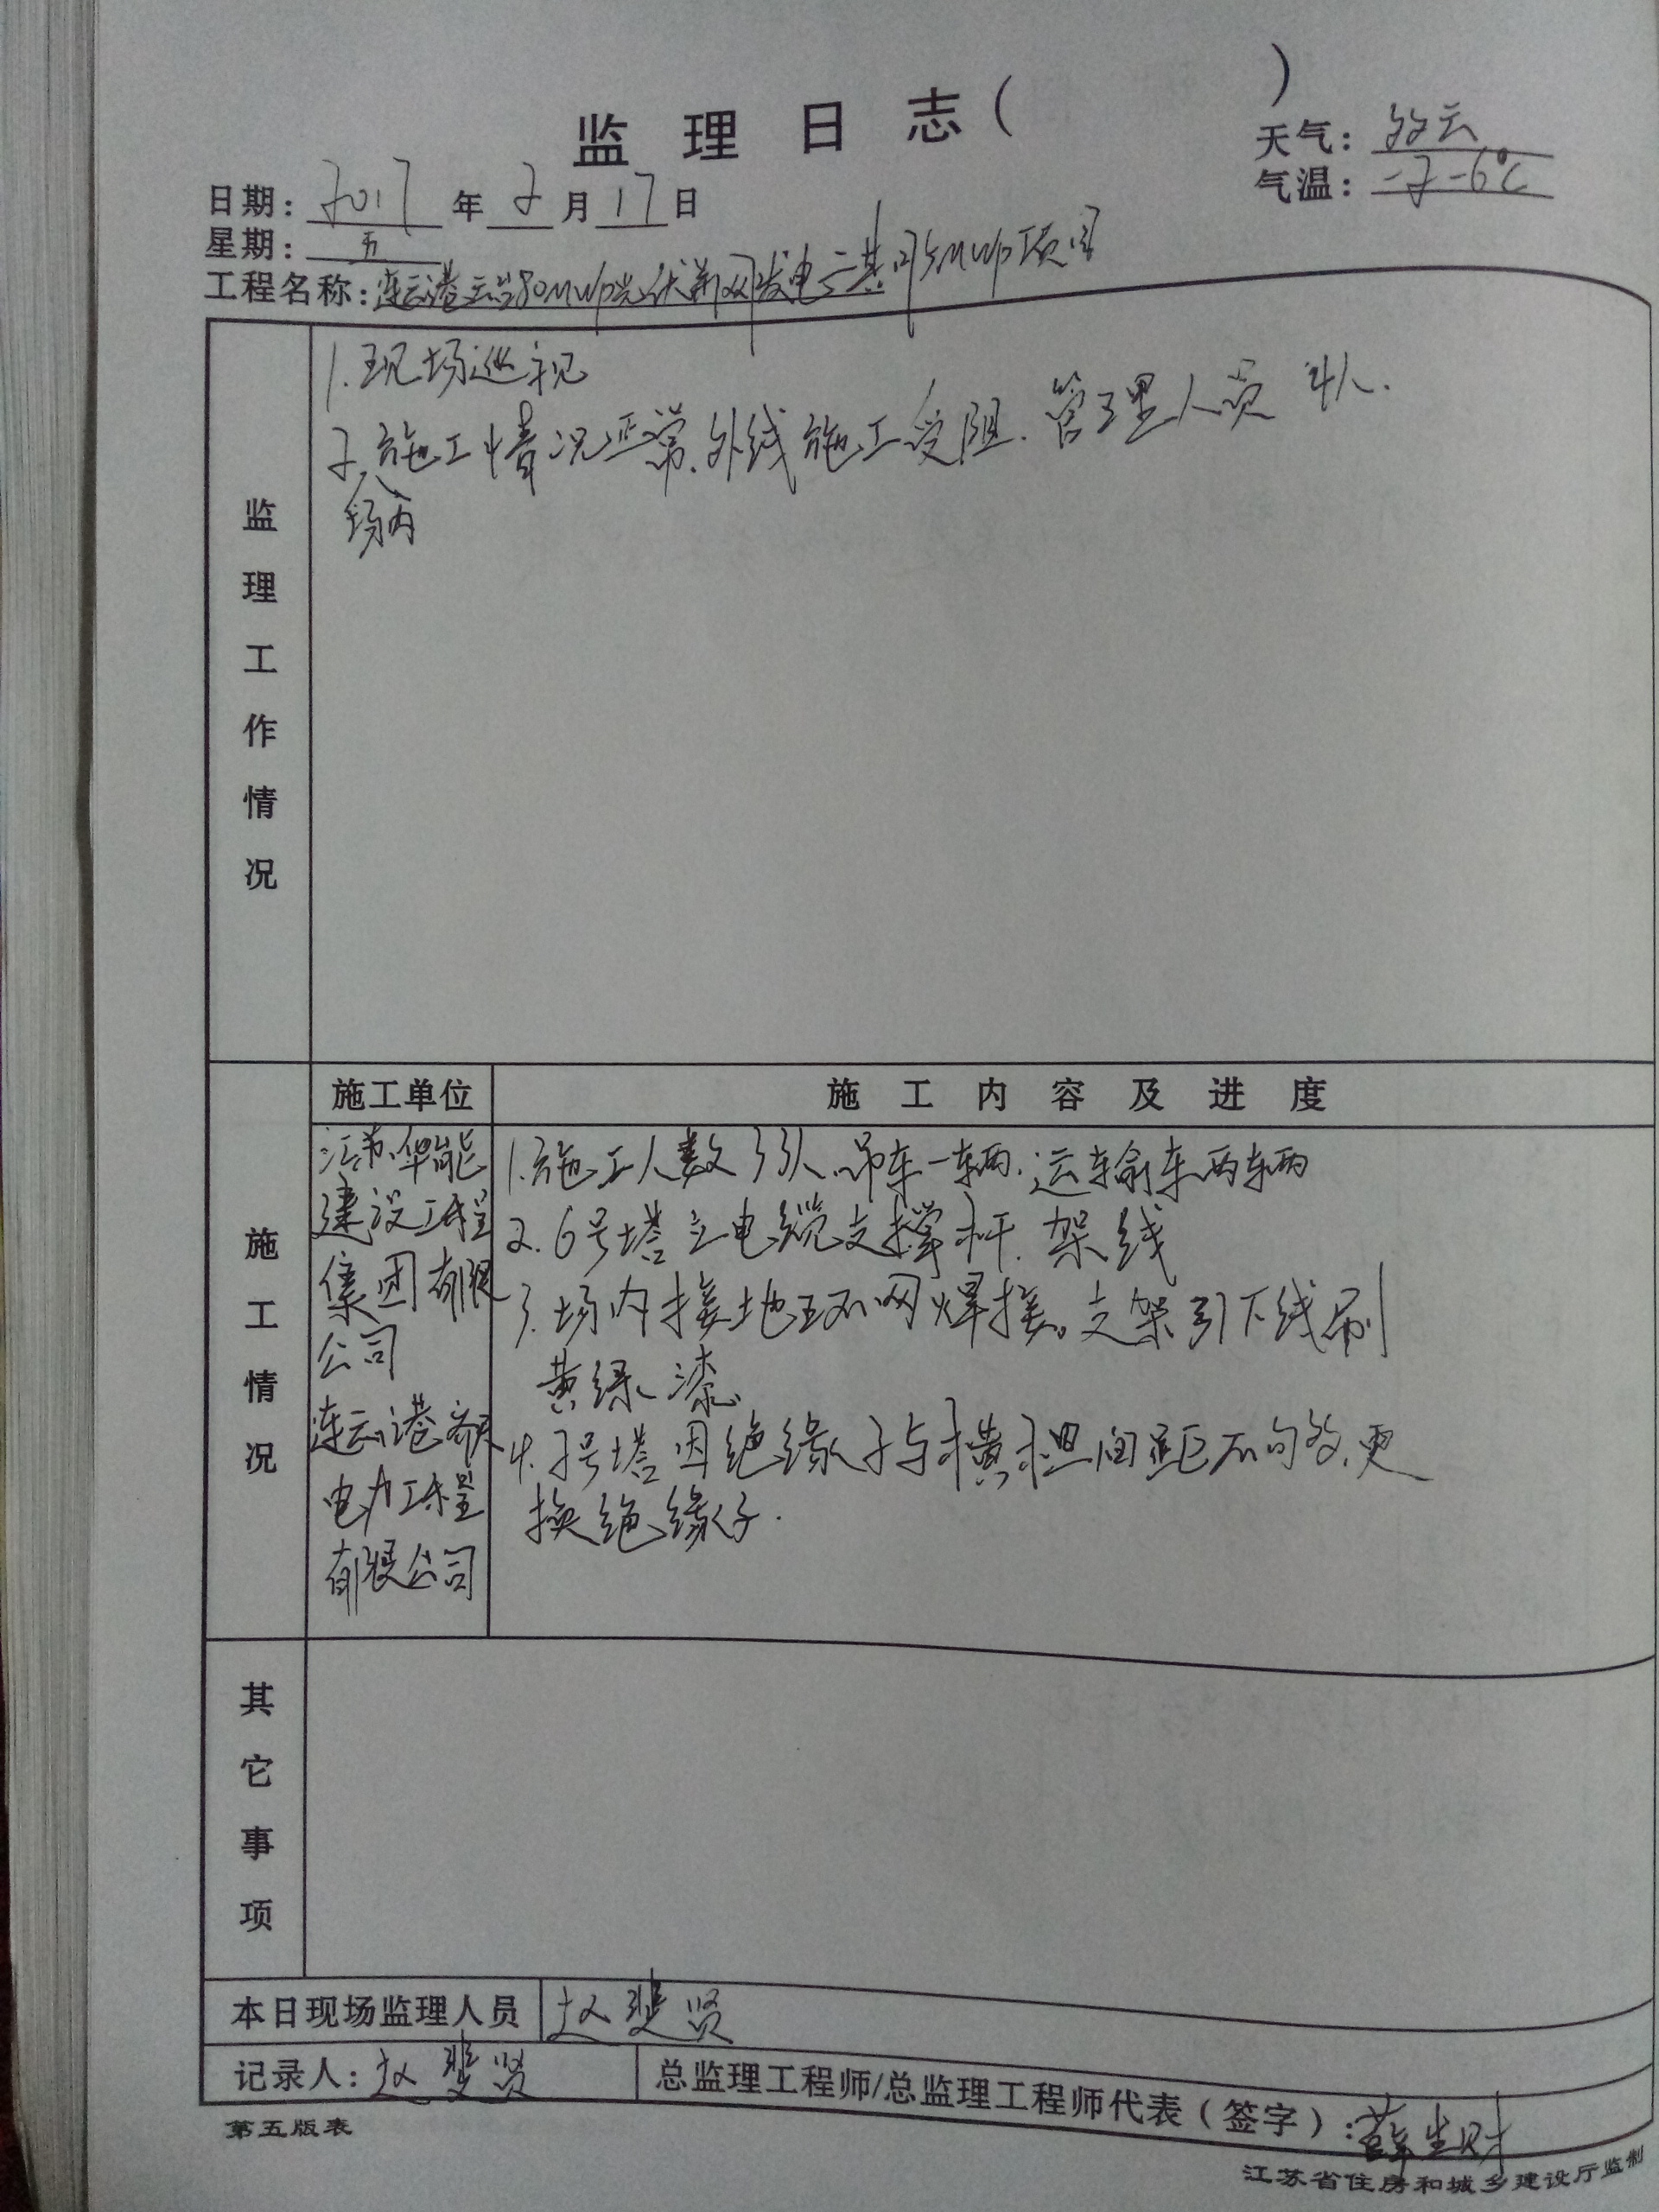 监理日志（ ）
天气：多云
日期：2017年2月17日
气温：-2-6℃
星期：五
工程名称：连云港云台80MWp光伏并网发电二期25MWp项目
监理工作情况
1.现场巡视
2.场内施工情况正常.外线施工受阻.管理人员4人.
施工情况
施工单位
施工内容及进度
江苏华能
建设工程
集团有限
公司
连云港
电力工程
有限公司
1.施工人数33人.吊车一辆.运输车两辆
2.6号塔立电缆支撑杆.架线
3.场内接地环网焊接。支架引下线刷
黄绿漆
4.2号塔因绝缘子与横担间距不够.更
换绝缘子.
其它事项
本日现场监理人员
赵斐贤
记录人：赵斐贤
总监理工程师/总监理工程师代表（签字）：薛生财
第五版表
江苏省住房和城乡建设厅监制